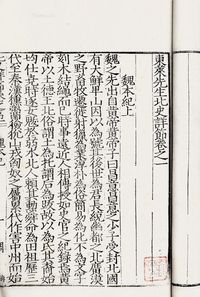 東萊先生北史詳節卷之一
魏本紀上
魏之先出自黃帝黃帝子曰昌意昌意之少子受封北國
有大鮮卑山因以為號其後世為君長統幽都之北廣漠
之野畜牧遷徙射獵為業淳樸為俗簡易為化不為文字
刻木結繩而已時事遠近人相傳授如史官之紀錄焉黃
帝以土德王北俗謂土為托謂后為跋故以為氏其裔始
均仕堯時逐女魃於弱水北人賴其勳舜命為田祖歷三
代至秦漢獯鬻獫狁山戎匈奴之屬累代作害中州而始